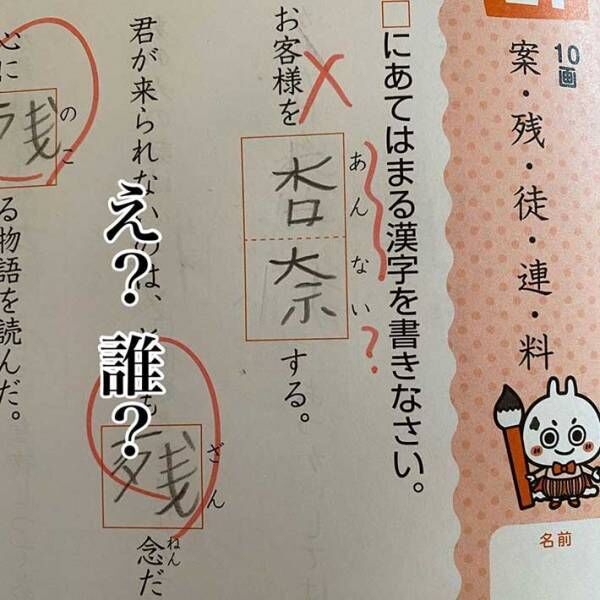 10画
案・残・徒・連・料
名前
□にあてはまる漢字を書きなさい。
あんない
お客様を杏奈する。
?
ざん
ねん
君が来られないのは、とても残念だ
のこ
心に残る物語を読んだ。
え？ 誰？